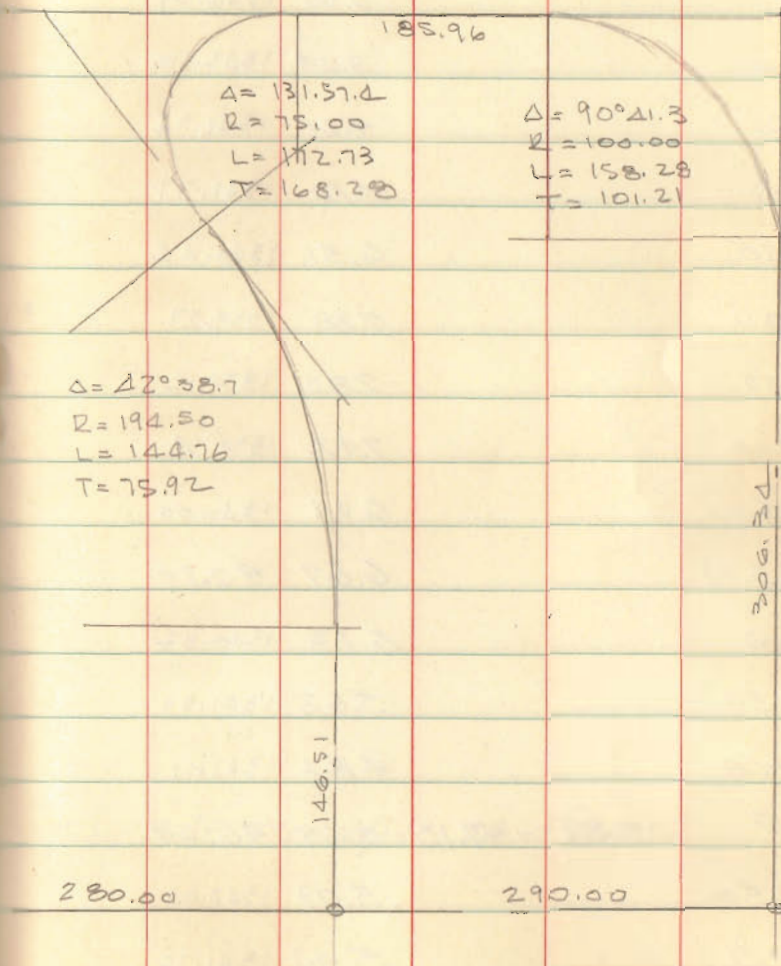 185.96
Δ = 131.57.4
R = 75.00
L = 172.73
T = 168.28
Δ = 90°41.3
R = 100.00
L = 158.28
T = 101.21
Δ = 42°38.7
R = 194.50
L = 144.76
T = 75.92
306.34
146.51
280.00
290.00